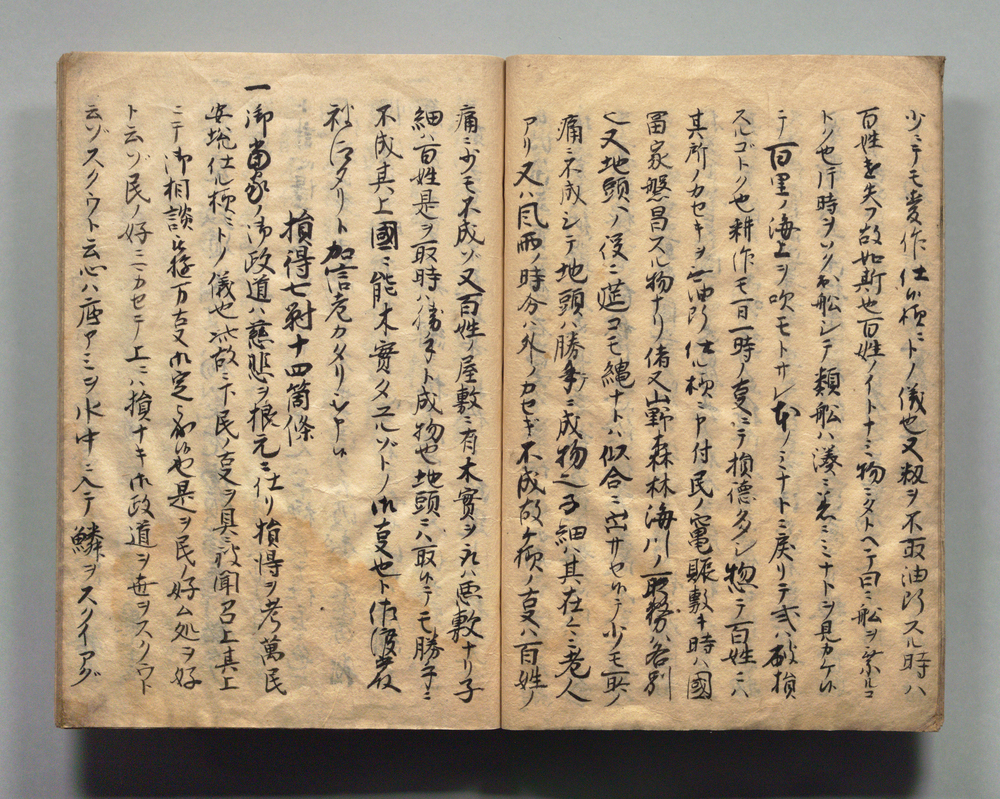 少ニテモ麦作仕ル様ニトノ儀也又籾ヲ不取油断スル時ハ
百姓ヲ失フ故如斯也百姓ノイトナミ物ニタトヘテ曰ニ船ヲ業ル
トソ也片時ヲソクハ船シテ類船ハ湊ニミナトヲ見カケ
テ百里ノ海上ヲ吹モトサレ本ノミナトニ戻リテ或ハ破損
スルゴトク也耕作モ一日一時ノ支ニテ損徳多シ惣テ百姓ニハ
其所ノカセキヲ無油断仕ル様ニ申付民ノ竃賑敷キ時ハ國
冨家繁昌スル物ナリ偖又山野森林海川ノ役務ハ各別
也又地頭ヘノ役ニ莚コモ縄ナトハ似合ニ出サセ少モ取ノ
痛ニ不成シテ地頭ハ勝手ニ成物也子細ハ其在々ニ老人
アリ又ハ風雨ノ時分ハ外ノカセキ不成故ケ様ノ支ハ百姓ノ
痛ニ少モ不成ゾ又百姓ノ屋敷ニ有木實ヲ取ハ悪敷ナリ子
細ハ百姓是ヲ取時ハ成物也地頭ニハ取テモ勝手ニ
不成其上國ニ能木實タユルゾトノ御支也ト佐渡守殿
被仰タリト加言老カタリシヤ
損得七對十四箇條
一御當家ノ御政道ハ慈悲ヲ根元ニ仕リ損得ヲ考萬民
安堵仕ル様ニトノ儀也此故ニ下民ノ支ヲ具ニ被聞召上其上
ニテ御相談被遊万支御定被成也是ヲ民ノ好ム処ヲ好
ト云ゾ民ノ好ニカセテ上ニハ損ナキ御政道ヲ世ヲスクウト
云ゾスクウト云心ハ魚アミヲ水中ニ入テ鱗ヲスクイアゲ